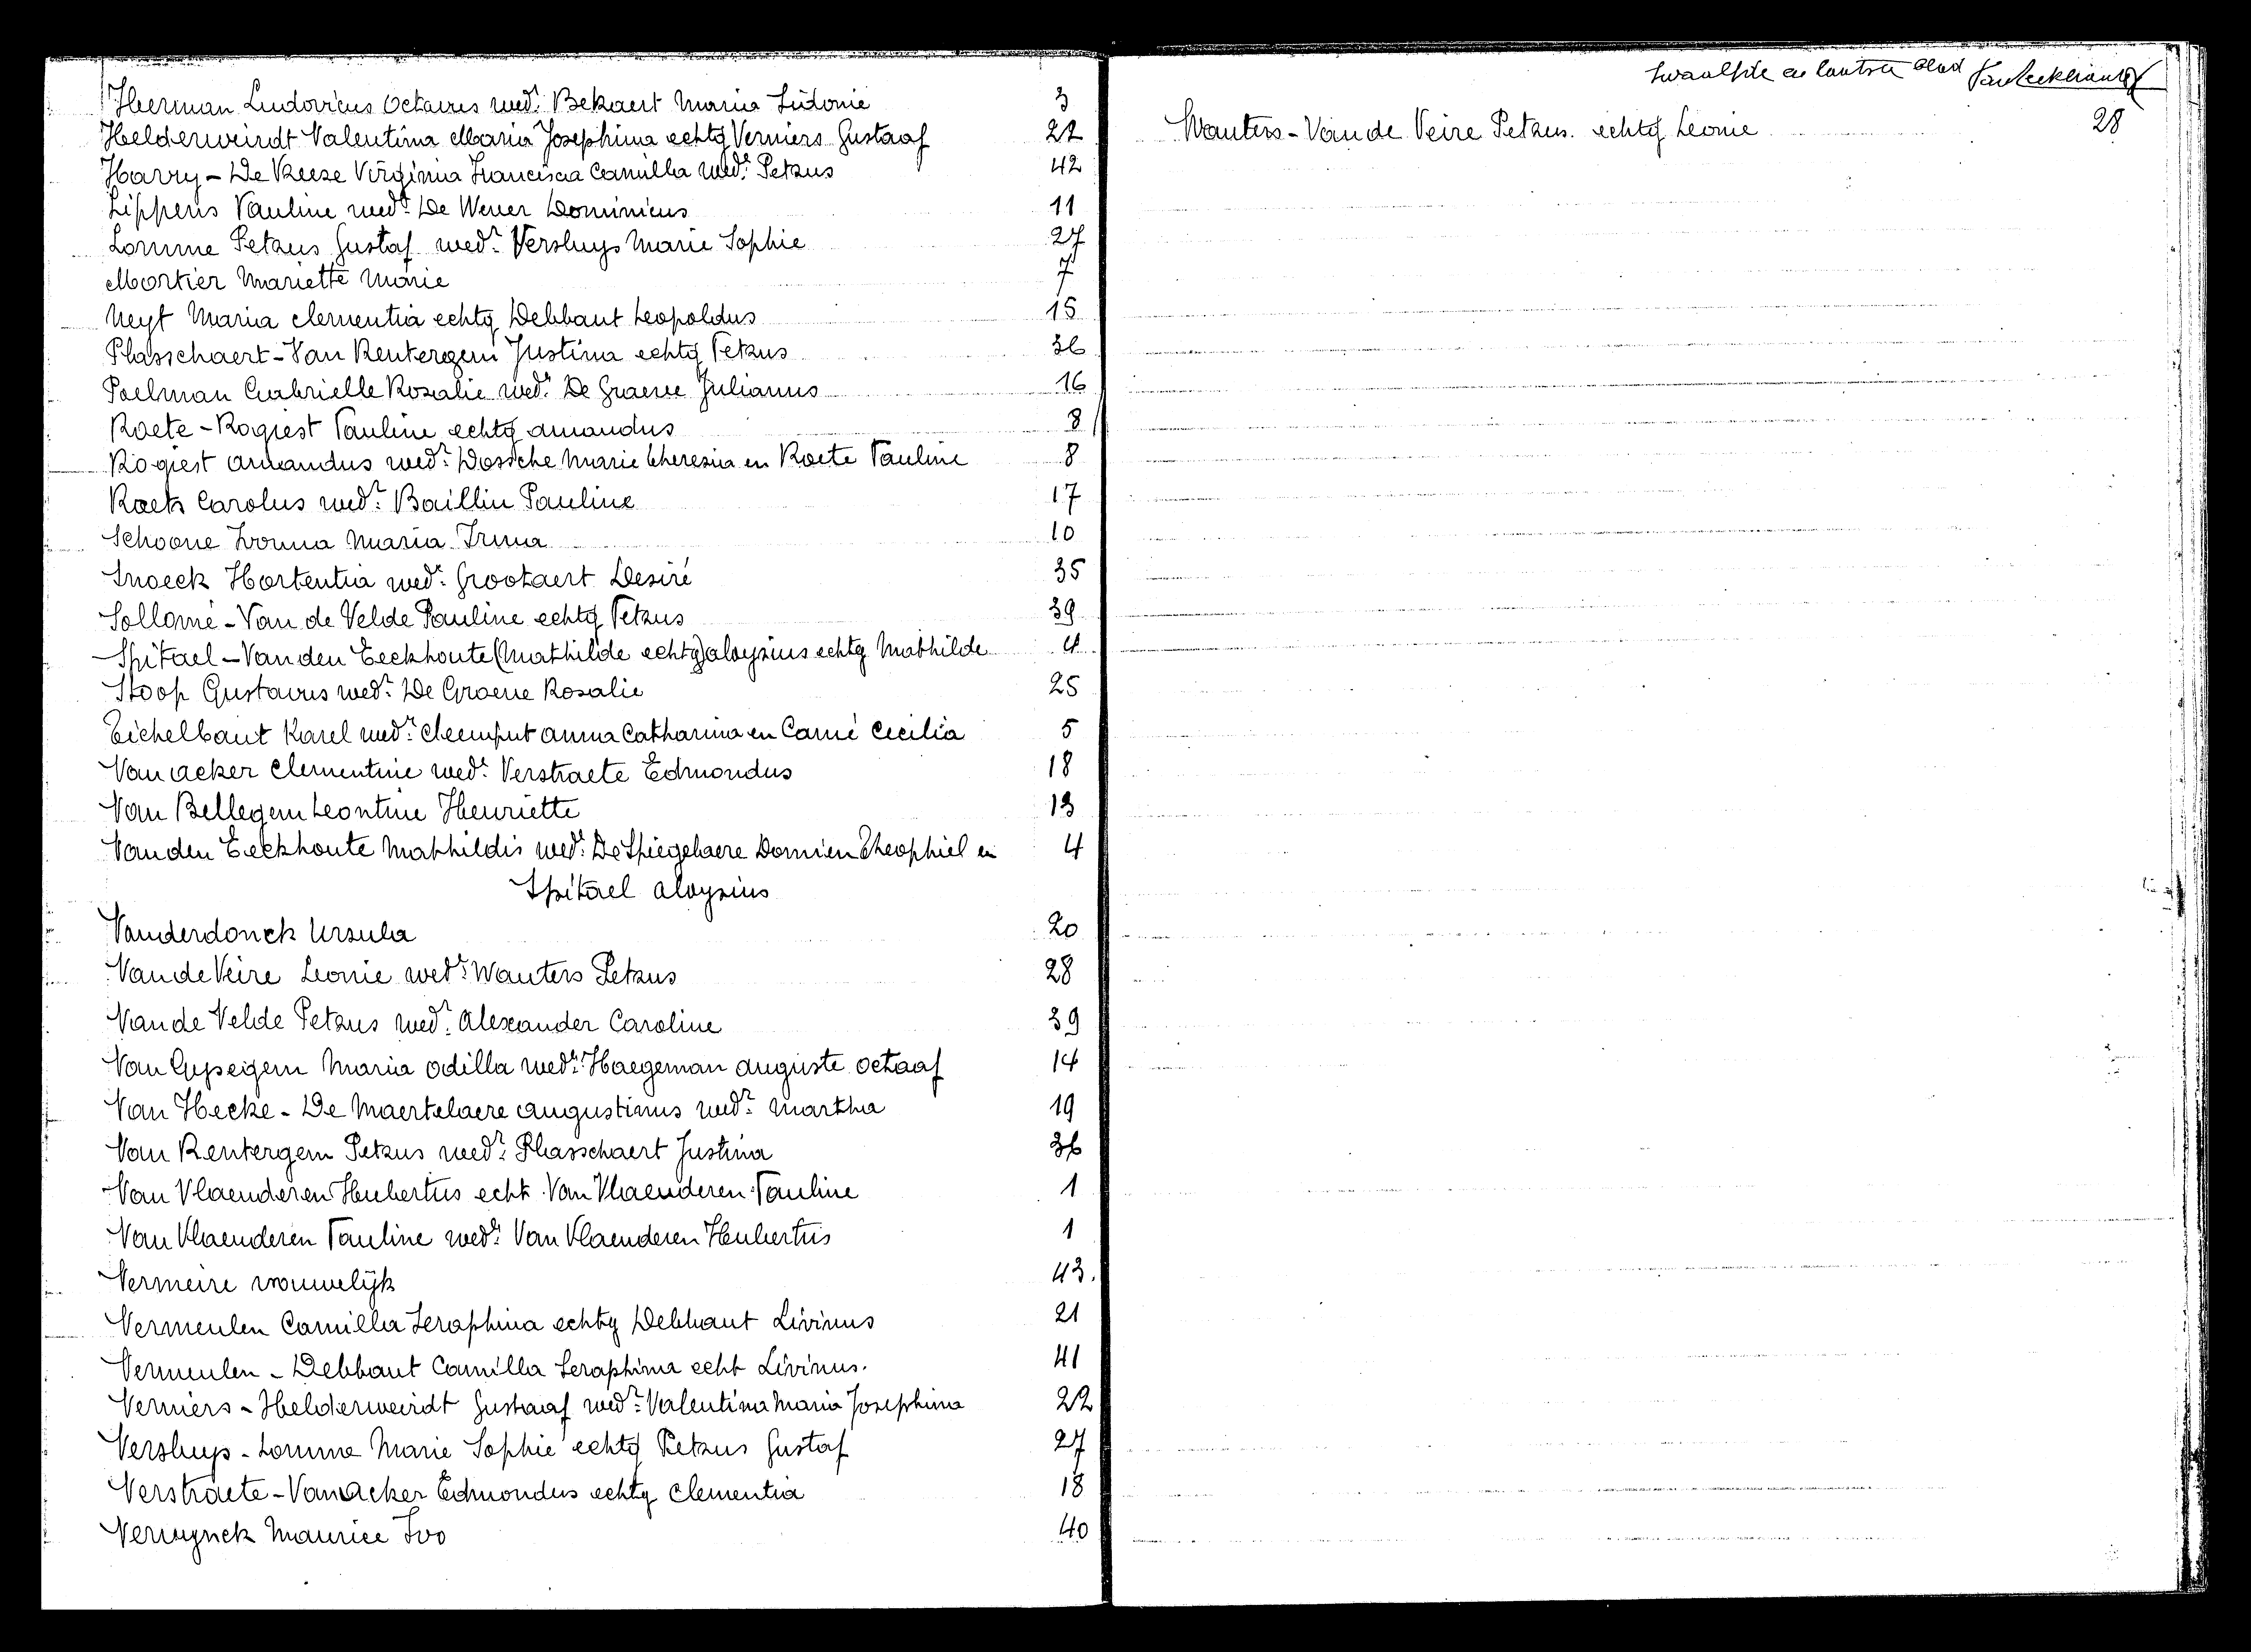 Herman Ludovicus Octavus wedr. Bekaert Maria Sidonie 3
Helderweirdt Valentina Maria Josephina echtg Verniers Gustaaf 22
Havry - De Keuze Virginia Francisca Camilla wede. Petrus 42
Lippens Pauline wede. De Wever Dominicus 11
Lomme Petrus Gustaf wedr. Versluys Marie Sophie 27
Mortier Mariette Marie 7
Neyt Maria Clementia echtg Debbaut Leopoldus 15
Plasschaert - Van Rentergem Justina echtg Petrus 36
Poelman Gabrielle Rosalie wede. De Graeve Julianus 16
Raete - Rogiest Pauline echtg Amandus 8
Rogiest Amandus wedr. Dossche Marie Theresia en Raete Pauline 8
Roets Carolus wedr. Baillin Pauline 17
Schoone Ivonna Maria Irma 10
Snoeck Hortentia wede. Grootaert Desiré 35
Sollomé - Van de Velde Pauline echtg Petrus 39
Spitael - Van den Eeckhoute (Mathilde echtg) Aloysius echtg Mathilde 4
Stoop Gustavus wedr. De Graeve Rosalie 25
Tichelbaut Karel wedr. Cheemput Anna Catharina en Carné Cecilia 5
Van Acker Clementine wede. Verstraete Edmondus 18
Van Bellegem Leontine Henriette 13
Van den Eeckhoute Mathildis wede. De Spiegelaere Domien Theophiel en 4
Spitael Aloysius
Vanderdonck Ursula 20
Van de Veire Leonie wede. Wauters Petrus 28
Van de Velde Petrus wedr. Alexander Caroline 39
Van Gyseghem Maria Odilla wede. Haegeman Auguste Octaaf 14
Van Hecke - De Maertelaere Augustinus wedr. Martha 19
Van Rentergem Petrus wedr. Plasschaert Justina 36
Van Vlaenderen Hubertus echt. Van Vlaenderen Pauline 1
Van Vlaenderen Pauline wede. Van Vlaenderen Hubertus 1
Vermeire vrouwelijk 43.
Vermeulen Camilla Seraphina echtg Debbaut Livinus 21
Vermeulen - Debbaut Camilla Seraphina echt Livinus. 41
Verniers - Helderweirdt Gustaaf wedr. Valentina Maria Josephina 22
Versluys - Lomme Marie Sophie echtg Petrus Gustaf 27
Verstraete - Van Acker Edmondus echtg Clementia 18
Verwynck Maurice Ivo 40
twaalfde en laatste blad
Wauters - Van de Veire Petrus. echtg Leonie 28